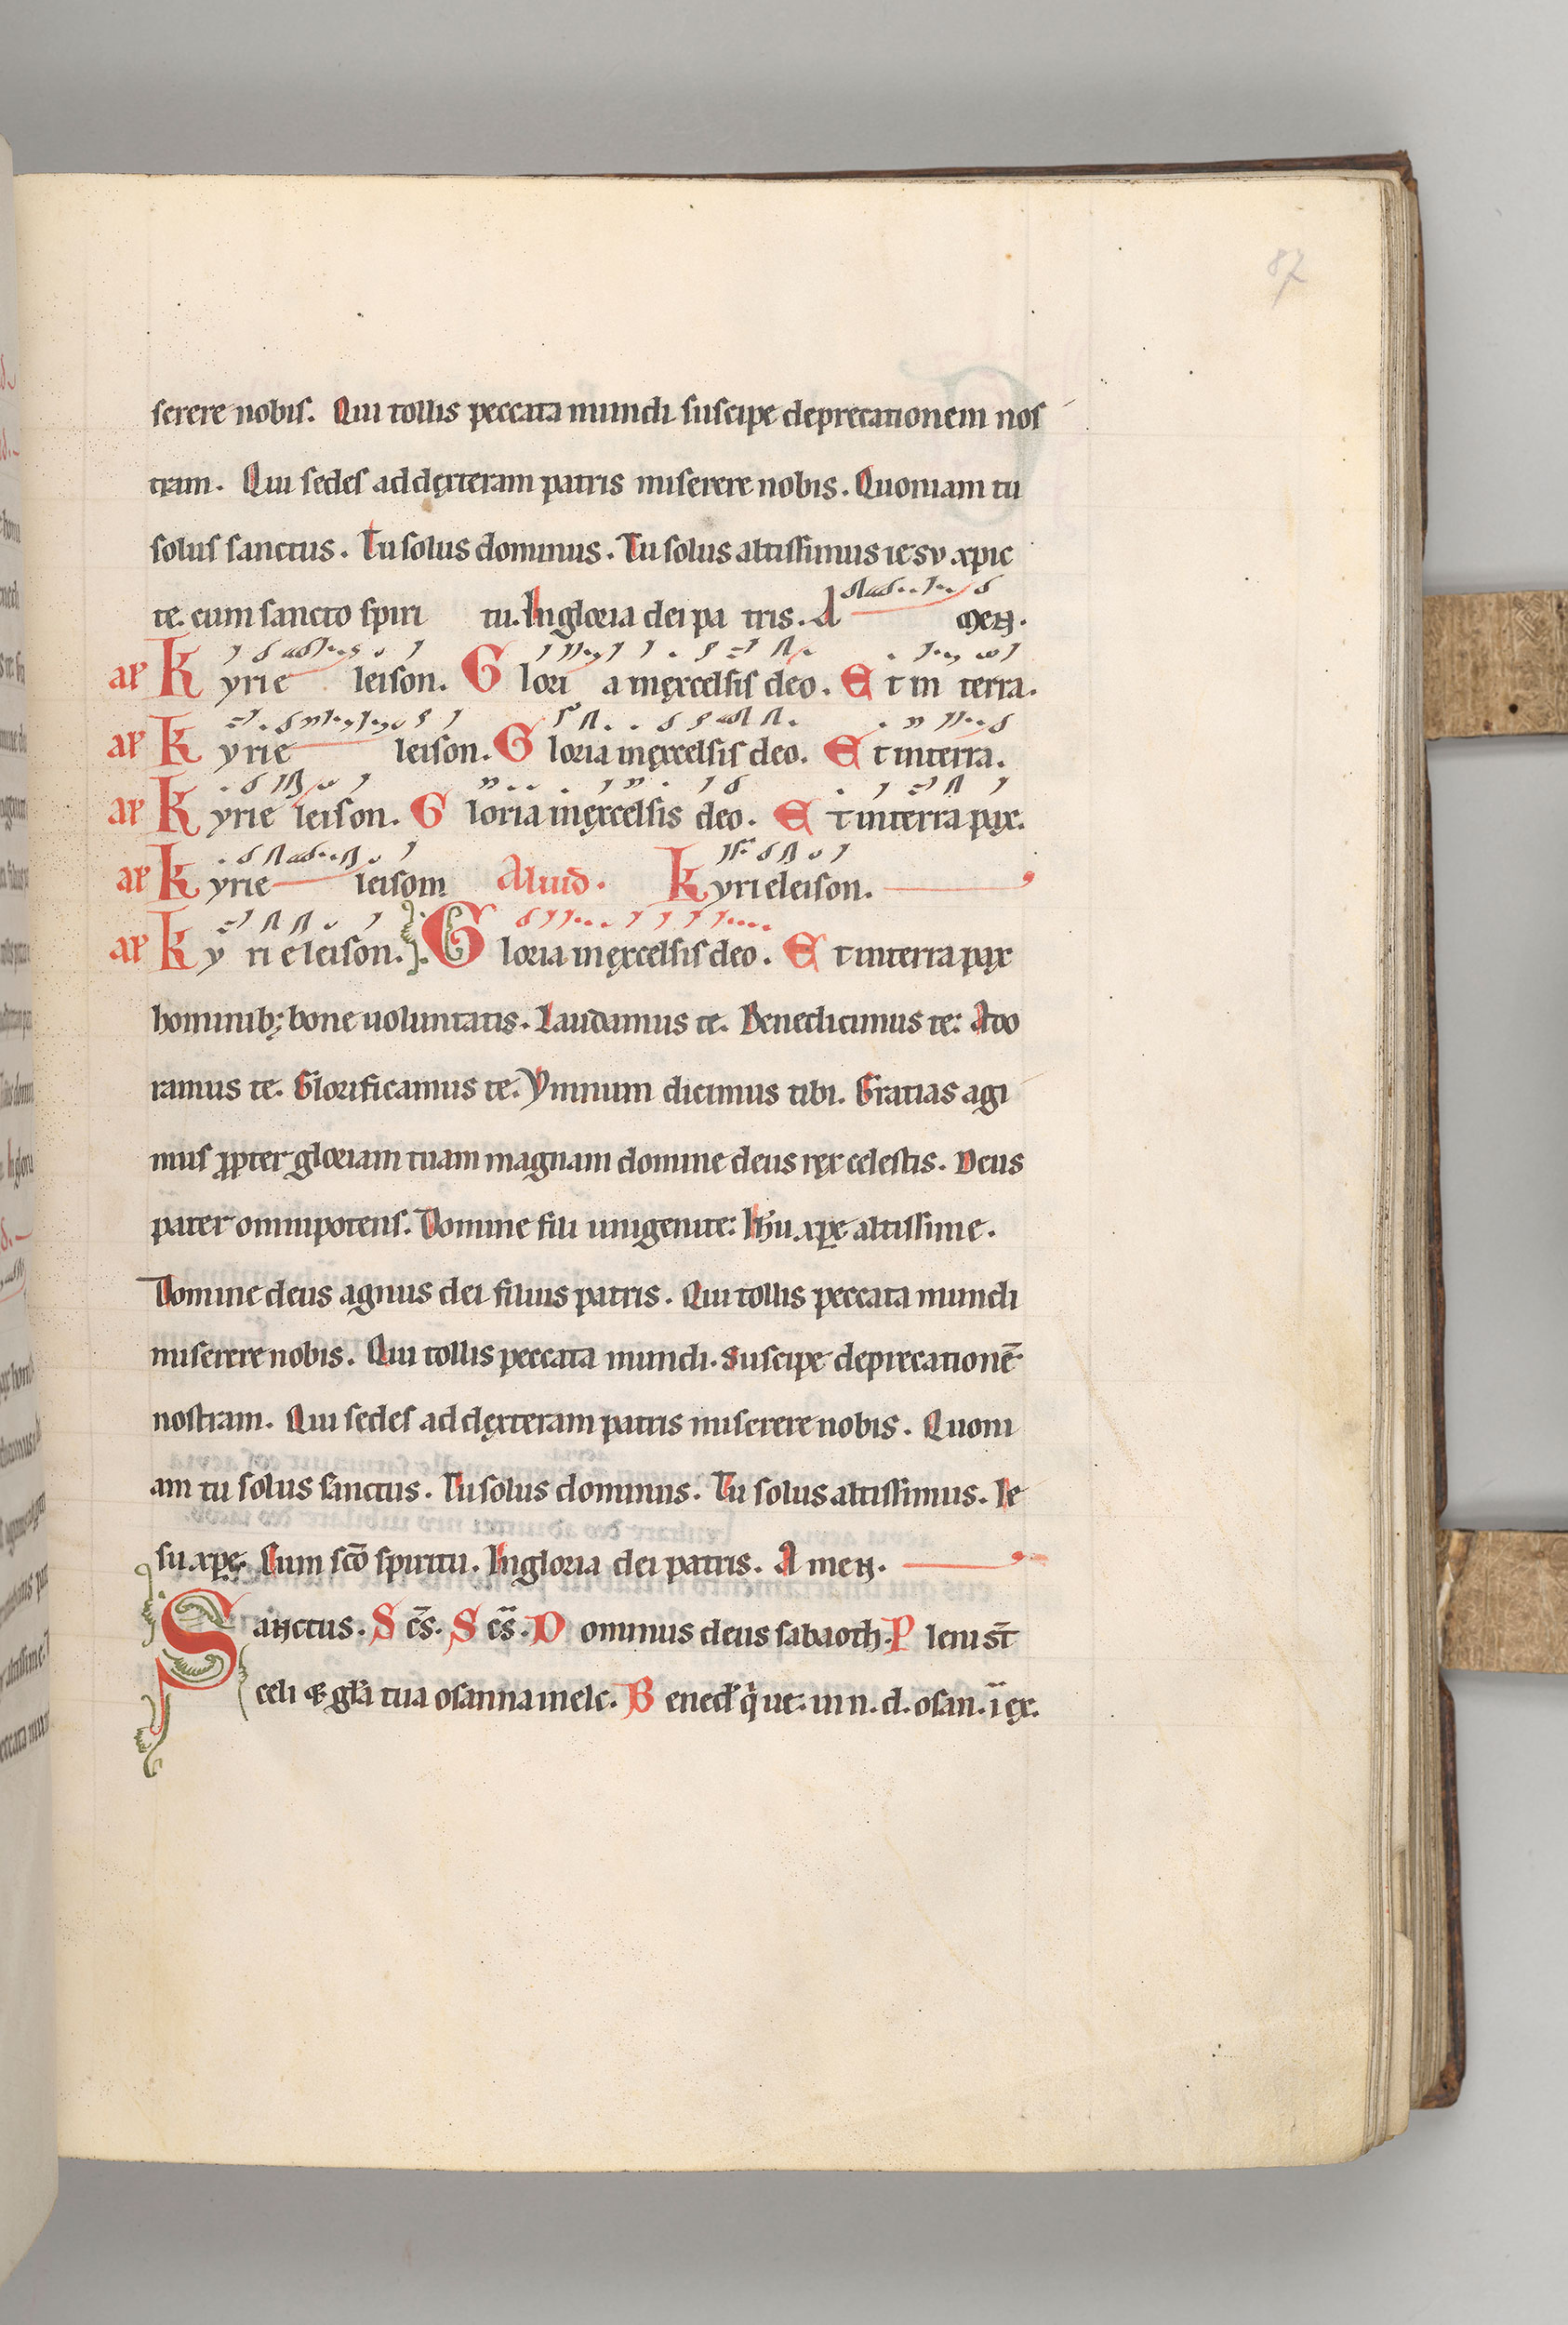 87
serere nobis. Qui tollis peccata mundi suscipe deprecationem nos
tram. Qui sedes ad dęxteram patris miserere nobis. Quoniam tu
solus sanctus. Tu solus dominus. Tu solus altissimus iesv xpic
te. cum sancto spiri tu. In gloria dei pa tris. A men.
Kyrie leison. Glori a in ęxcelsis deo. Et in terra.
Kyrie leison. Gloria in ęxcelsis deo. Et in terra.
Kyrie leison. Gloria in ęxcelsis deo. Et in terra pax.
Kyrie leisom Aliud. Kyrieleison.
Ky ri e leison. Gloria in ęxcelsis deo. Et in terra pax
hominib; bone uoluntatis. Laudamus te. Benedicimus te: Ado
ramus te. Glorificamus te. Ymnum dicimus tibi. Gratias agi
mus ꝓpter gloriam tuam magnam domine deus rex celestis. Deus
pater omnipotens. Domine fili unigenite: Ihu xpe altissime.
Domine deus agnus dei filius patris. Qui tollis peccata mundi
miserere nobis. Qui tollis peccata mundi. Suscipe deprecationē
nostram. Qui sedes ad dęxteram patris miserere nobis. Quoni
am tu solus sanctus. Tu solus dominus. Tu solus altissimus. Ie
su xpe. Cum scō spiritu. In gloria dei patris. Amen.
Sanctus. Scs̄. Scs̄. Dominus deus sabaoth. Pleni st̄
celi & gl̄a tua osanna inelc. Bened' q̇ ue: in n. d. osan. ī ęx.